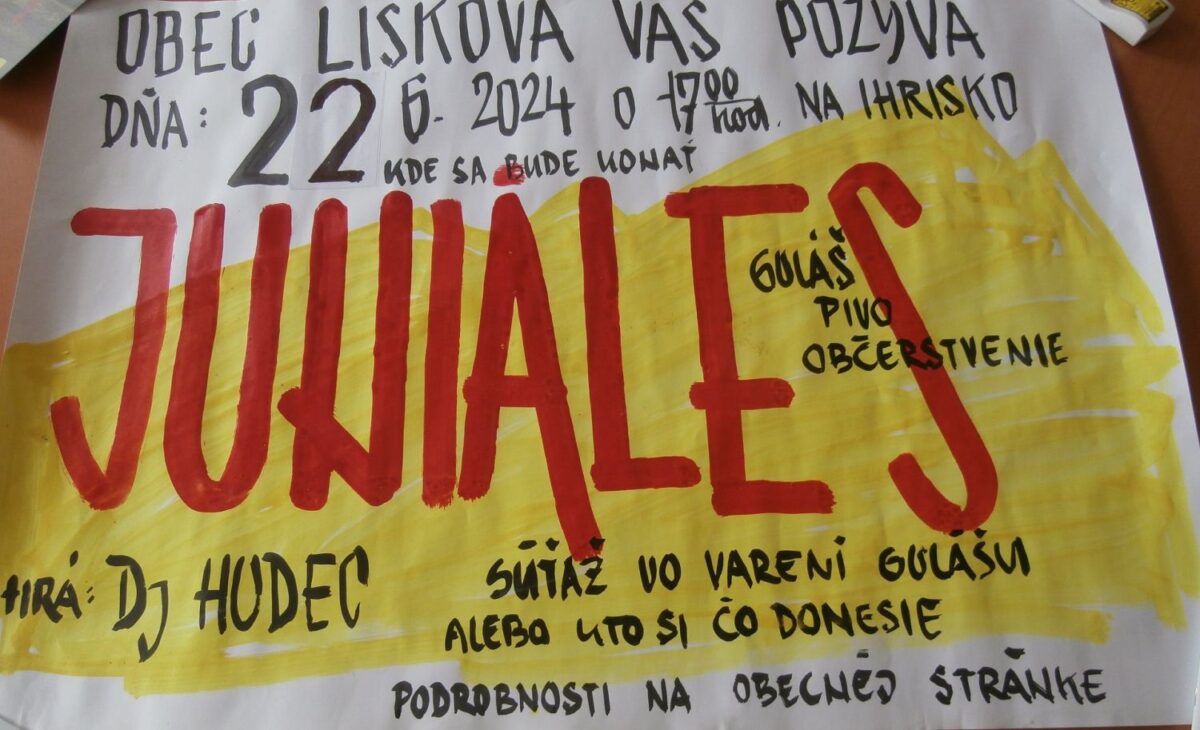 OBEC LISKOVA VAS POZÝVA
DŇA: 22 6. 2024 O 17 00 hod. NA IHRISKO
KDE SA BUDE KONAŤ
JUNIÁLES
GULÁŠ
PIVO
OBČERSTVENIE
HRÁ: DJ HUDEC
SÚŤAŽ VO VARENÍ GULÁŠU
ALEBO KTO SI ČO DONESIE
PODROBNOSTI NA OBECNEJ STRÁNKE